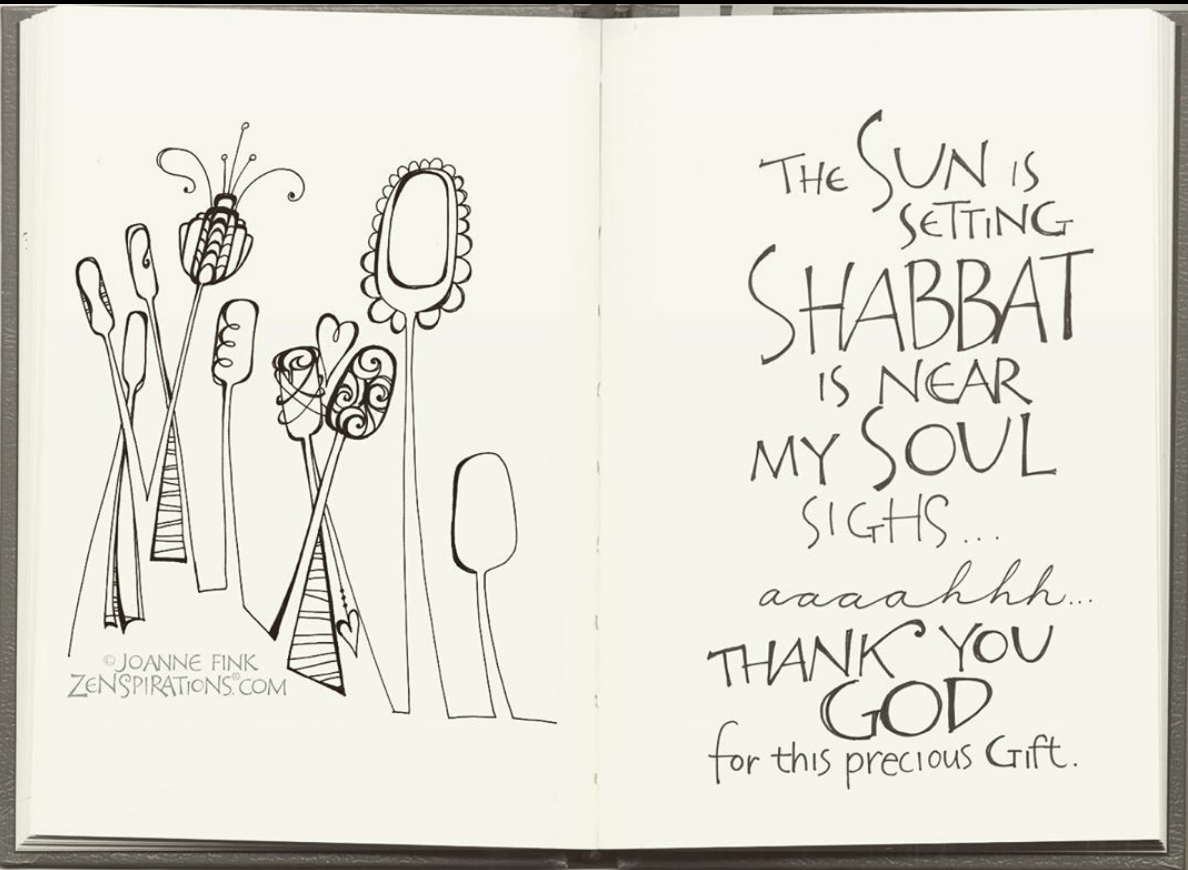 © JOANNE FINK
ZENSPIRATIONS®.COM
THE SUN IS
SETTING
SHABBAT
IS NEAR
MY SOUL
SIGHS...
aaaahhh...
THANK YOU
GOD
for this precious Gift.